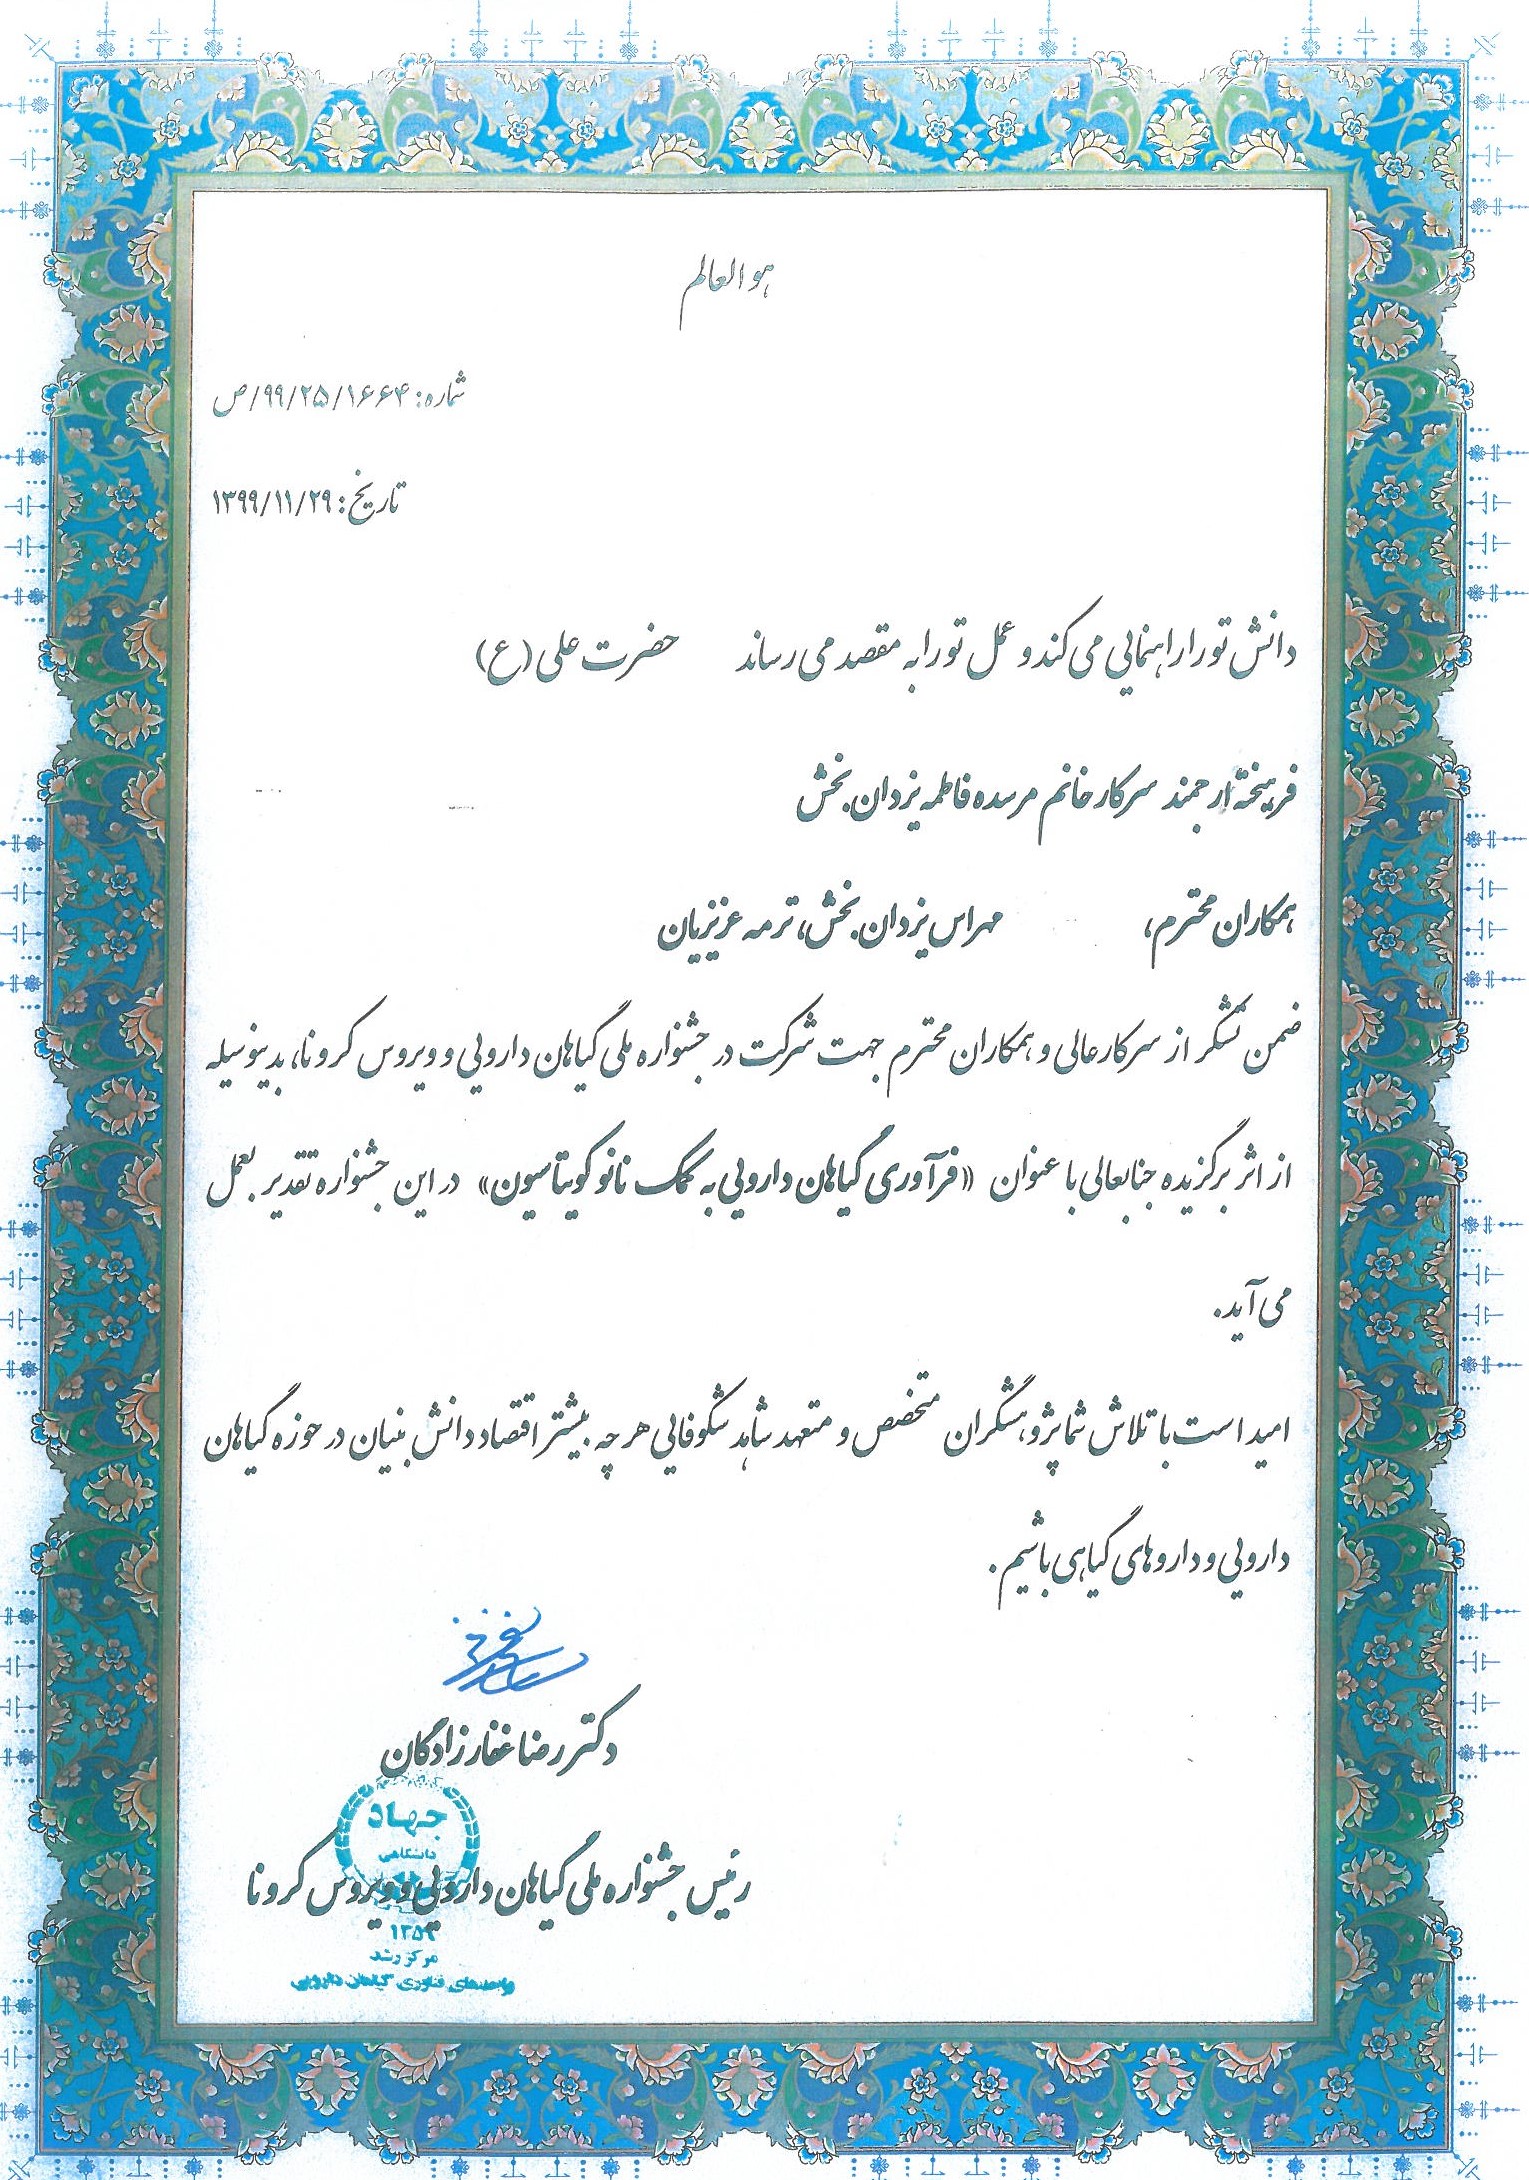 هوالعالم
شماره: ۹۹/۲۵/۱۶۶۴/ص
تاریخ: ۱۳۹۹/۱۱/۲۹
دانش تو را راهنمایی می کند و عمل تو را به مقصد می رساند حضرت علی (ع)
فرهیخته ارجمند سرکار خانم مرسده فاطمه یزدان بخش
همکاران محترم، مهراس یزدان بخش، ترمه عزیزیان
ضمن تشکر از سرکارعالی و همکاران محترم جهت شرکت در جشنواره ملی گیاهان دارویی و ویروس کرونا، بدینوسیله
از اثر برگزیده جنابعالی با عنوان «فرآوری گیاهان دارویی به کمک نانو کویتاسیون» در این جشنواره تقدیر بعمل
می آید.
امید است با تلاش شما پژوهشگران متخصص و متعهد شاهد شکوفایی هر چه بیشتر اقتصاد دانش بنیان در حوزه گیاهان
دارویی و داروهای گیاهی باشیم.
دکتر رضا غفارزادگان
جهاد
دانشگاهی
رئیس جشنواره ملی گیاهان دارویی و ویروس کرونا
۱۳۵۹
مرکز رشد
واحدهای فناوری گیاهان دارویی